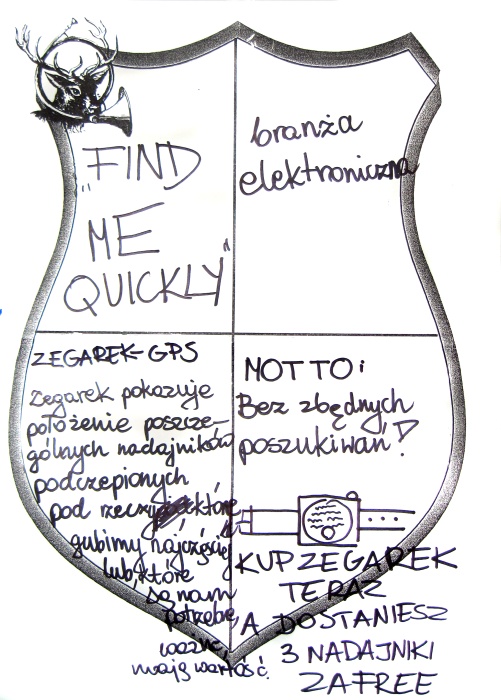 „FIND
ME
QUICKLY"
branża
elektroniczna
ZEGAREK-GPS
Zegarek pokazuje
położenie poszcze-
gólnych nadajników
podczepionych
pod rzeczy które
gubimy najczęściej
lub, które
są nam
potrzebne,
ważne,
mają wartość.
MOTTO:
Bez zbędnych
poszukiwań!
KUP ZEGAREK
TERAZ
A DOSTANIESZ
3 NADAJNIKI
ZA FREE